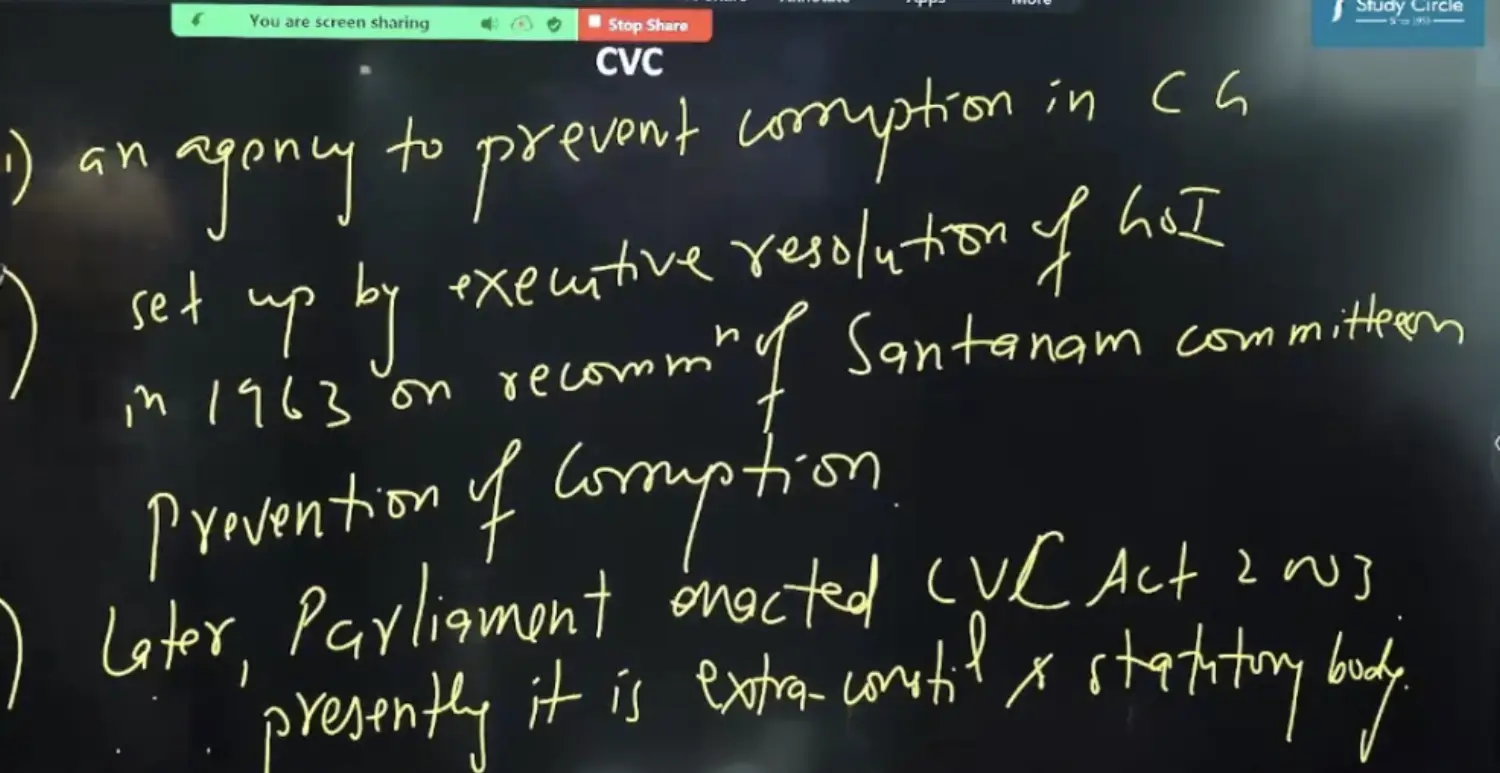 You are screen sharing Stop Share
More
Study Circle
CVC
1) an agency to prevent corruption in CG
) set up by executive resolution of GoI
in 1963 on recommⁿ of Santanam committee on
Prevention of Corruption.
) Later, Parliament enacted CVC Act 2003.
presently it is extra-constil & statutory body.